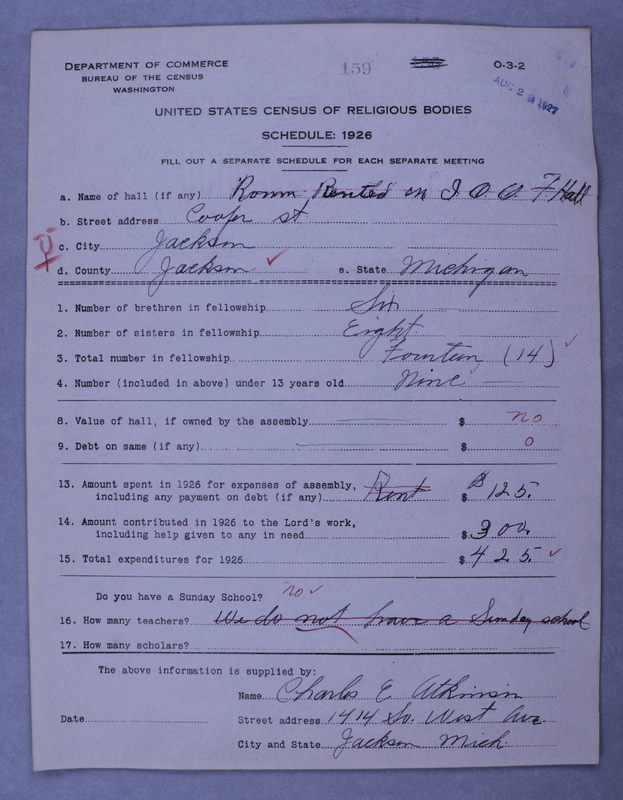 DEPARTMENT OF COMMERCE 159 O-3-2
BUREAU OF THE CENSUS
WASHINGTON AUG 2 1927
UNITED STATES CENSUS OF RELIGIOUS BODIES
SCHEDULE: 1926
FILL OUT A SEPARATE SCHEDULE FOR EACH SEPARATE MEETING
a. Name of hall (if any) Room Rented in I O O F Hall
b. Street address Cooper st
c. City Jackson
d. County Jackson ✓ e. State Michigan
1. Number of brethren in fellowship Six
2. Number of sisters in fellowship Eight
3. Total number in fellowship Fourteen (14) ✓
4. Number (included in above) under 13 years old None
8. Value of hall, if owned by the assembly $ no
9. Debt on same (if any) $ 0
13. Amount spent in 1926 for expenses of assembly,
including any payment on debt (if any) Rent $ $125.
14. Amount contributed in 1926 to the Lord's work,
including help given to any in need $ 300.
15. Total expenditures for 1926 $ 425. ✓
Do you have a Sunday School? no ✓
16. How many teachers? We do not have a Sunday school
17. How many scholars?
The above information is supplied by:
Name Charles E Atkinson
Date Street address 1414 So. West Ave
City and State Jackson Mich.